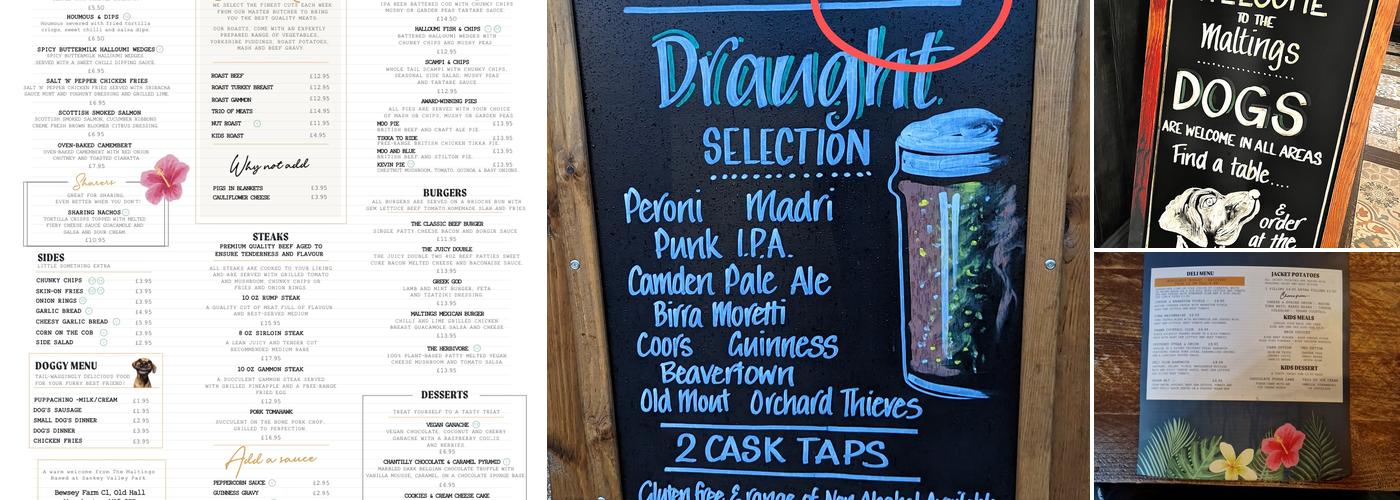 £5.50
HOUMOUS & DIPS
Houmous severed with fried tortilla
crisps, sweet chilli and salsa dips.
£6.50
SPICY BUTTERMILK HALLOUMI WEDGES
SPICY BUTTERMILK HALLOUMI WEDGES
SERVED WITH A SWEET CHILLI DIPPING SAUCE.
£6.95
SALT 'N' PEPPER CHICKEN FRIES
SALT 'N' PEPPER CHICKEN FRIES SERVED WITH SRIRACHA
SAUCE MONT AND YOGHUNT DRESSING AND GRILLED LIME.
£6.95
SCOTTISH SMOKED SALMON
SCOTTISH SMOKED SALMON, CUCUMBER RIBBONS
CREME FRESH BROWN BLOOMER CITRUS DRESSING.
£6.95
OVEN-BAKED CAMEMBERT
OVEN-BAKED CAMEMBERT WITH RED ONION
CHUTNEY AND TOASTED CIABATTA
£7.95
Sharers
GREAT FOR SHARING,
EVEN BETTER WHEN YOU DON'T!
SHARING NACHOS
TORTILLA CRISPS TOPPED WITH MELTED
FIERY CHEESE SAUCE GUACAMOLE AND
SALSA AND SOUR CREAM.
£10.95
SIDES
LITTLE SOMETHING EXTRA
CHUNKY CHIPS £3.95
SKIN-ON FRIES £3.95
ONION RINGS £3.95
GARLIC BREAD £4.95
CHEESY GARLIC BREAD £5.95
CORN ON THE COB £3.95
SIDE SALAD £2.95
DOGGY MENU
TAIL-WAGGINGLY DELICIOUS FOOD
FOR YOUR FURRY BEST FRIEND!
PUPPACHINO -MILK/CREAM £1.95
DOG'S SAUSAGE £1.95
SMALL DOG'S DINNER £2.95
DOG'S DINNER £3.95
CHICKEN FRIES £3.95
A warm welcome from The Maltings
Based at Sankey Valley Park
Bewsey Farm Cl, Old Hall
WE SELECT THE FINEST CUTS EACH WEEK
FROM OUR MASTER BUTCHER TO BRING
YOU THE BEST QUALITY MEATS.
OUR ROASTS, COME WITH AN EXPERTLY
PREPARED RANGE OF VEGETABLES,
YORKSHIRE PUDDINGS, ROAST POTATOES,
MASH AND BEEF GRAVY
ROAST BEEF £12.95
ROAST TURKEY BREAST £12.95
ROAST GAMMON £12.95
TRIO OF MEATS £14.95
NUT ROAST £11.95
KIDS ROAST £4.95
Why not add
PIGS IN BLANKETS £3.95
CAULIFLOWER CHEESE £3.95
STEAKS
PREMIUM QUALITY BEEF AGED TO
ENSURE TENDERNESS AND FLAVOUR
ALL STEAKS ARE COOKED TO YOUR LIKING
AND ARE SERVED WITH GRILLED TOMATO
AND MUSHROOM, CHUNKY CHIPS OR
FRIES AND ONION RINGS
10 OZ RUMP STEAK
A QUALITY CUT OF MEAT FULL OF FLAVOUR
AND BEST-SERVED MEDIUM
£15.95
8 OZ SIRLOIN STEAK
A LEAN JUICY AND TENDER CUT
RECOMMENDED MEDIUM RARE
£17.95
10 OZ GAMMON STEAK
A SUCCULENT GAMMON STEAK SERVED
WITH GRILLED PINEAPPLE AND A FREE-RANGE
FRIED EGG
£12.95
PORK TOMAHAWK
SUCCULENT ON THE BONE PORK CHOP,
GRILLED TO PERFECTION.
£16.95
Add a sauce
PEPPERCORN SAUCE £2.95
GUINNESS GRAVY £2.95
IPA BEER BATTERED COD WITH CHUNKY CHIPS
MUSHY OR GARDEN PEAS TARTARE SAUCE.
£14.50
HALLOUMI FISH & CHIPS
BATTERED HALLOUMI WEDGES WITH
CHUNKY CHIPS AND MUSHY PEAS
£12.95
SCAMPI & CHIPS
WHOLE TAIL SCAMPI WITH CHUNKY CHIPS,
SEASONAL SIDE SALAD, MUSHY PEAS
AND TARTARE SAUCE
£12.95
AWARD-WINNING PIES
ALL PIES ARE SERVED WITH YOUR CHOICE
OF MASH OR CHIPS, MUSHY OR GARDEN PEAS
MOO PIE £13.95
BRITISH BEEF AND CRAFT ALE PIE.
TIKKA TO RIDE £13.95
FREE-RANGE BRITISH CHICKEN TIKKA PIE.
MOO AND BLUE £13.95
BRITISH BEEF AND STILTON PIE.
KEVIN PIE £13.95
CHESTNUT MUSHROOM, TOMATO, QUINOA & BABY ONIONS.
BURGERS
ALL BURGERS ARE SERVED ON A BRIOCHE BUN WITH
GEM LETTUCE BEEF TOMATO HOMEMADE SLAW AND FRIES
THE CLASSIC BEEF BURGER
SINGLE PATTY CHEESE BACON AND BURGIR SAUCE
£11.95
THE JUICY DOUBLE
THE JUICY DOUBLE TWO 4OZ BEEF PATTIES SWEET
CURE BACON MELTED CHEESE AND BACONAISE SAUCE.
£13.95
GREEK GOD
LAMB AND MINT BURGER, FETA
AND TZATZIKI DRESSING.
£13.95
MALTINGS MEXICAN BURGER
CHILLI AND LIME GRILLED CHICKEN
BREAST GUACAMOLE SALSA AND CHEESE.
£13.95
THE HERBIVORE
100% PLANT-BASED PATTY MELTED VEGAN
CHEESE MUSHROOM AND TOMATO SALSA
£13.95
DESSERTS
TREAT YOURSELF TO A TASTY TRIAT
VEGAN GANACHE
VEGAN CHOCOLATE, COCONUT AND CHERRY
GANACHE WITH A RASPBERRY COULIS
AND BERRIES.
£6.95
CHANTILLY CHOCOLATE & CARAMEL PYRAMID
MARBLED DARK BELGIAN CHOCOLATE TRUFFLE WITH
VANILLA MOUSSE, CARAMEL ON A CHOCOLATE SPONGE BASE
£6.95
COOKIES & CREAM CHEESE CAKE
Draught
SELECTION
Peroni Madri
Punk I.P.A.
Camden Pale Ale
Birra Moretti
Coors Guinness
Beavertown
Old Mout Orchard Thieves
2 CASK TAPS
Gluten free & range of Non Alcohol Available
WELCOME
TO THE
Maltings
DOGS
ARE WELCOME IN ALL AREAS
Find a table....
& order
at the
DELI MENU
JACKET POTATOES
KIDS MEALS
KIDS DESSERT